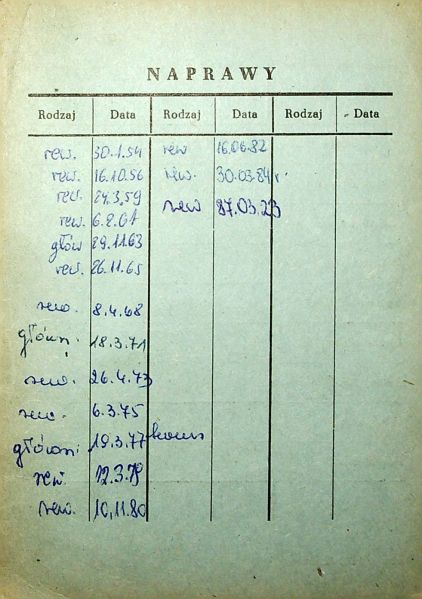 NAPRAWY
Rodzaj Data Rodzaj Data Rodzaj Data
rew. 30.1.54 rew 16.06.82
rew. 16.10.56 rew. 30.03.84 r.
rew. 24.3.59 rew 87.03.23
rew. 6.2.61
głów 29.11.63
rew. 26.11.65
rew. 8.4.68
główn. 18.3.71
rew. 26.4.73
rew. 6.3.75
główn. 19.3.77
rew. 12.3.79
rew. 10,11.80